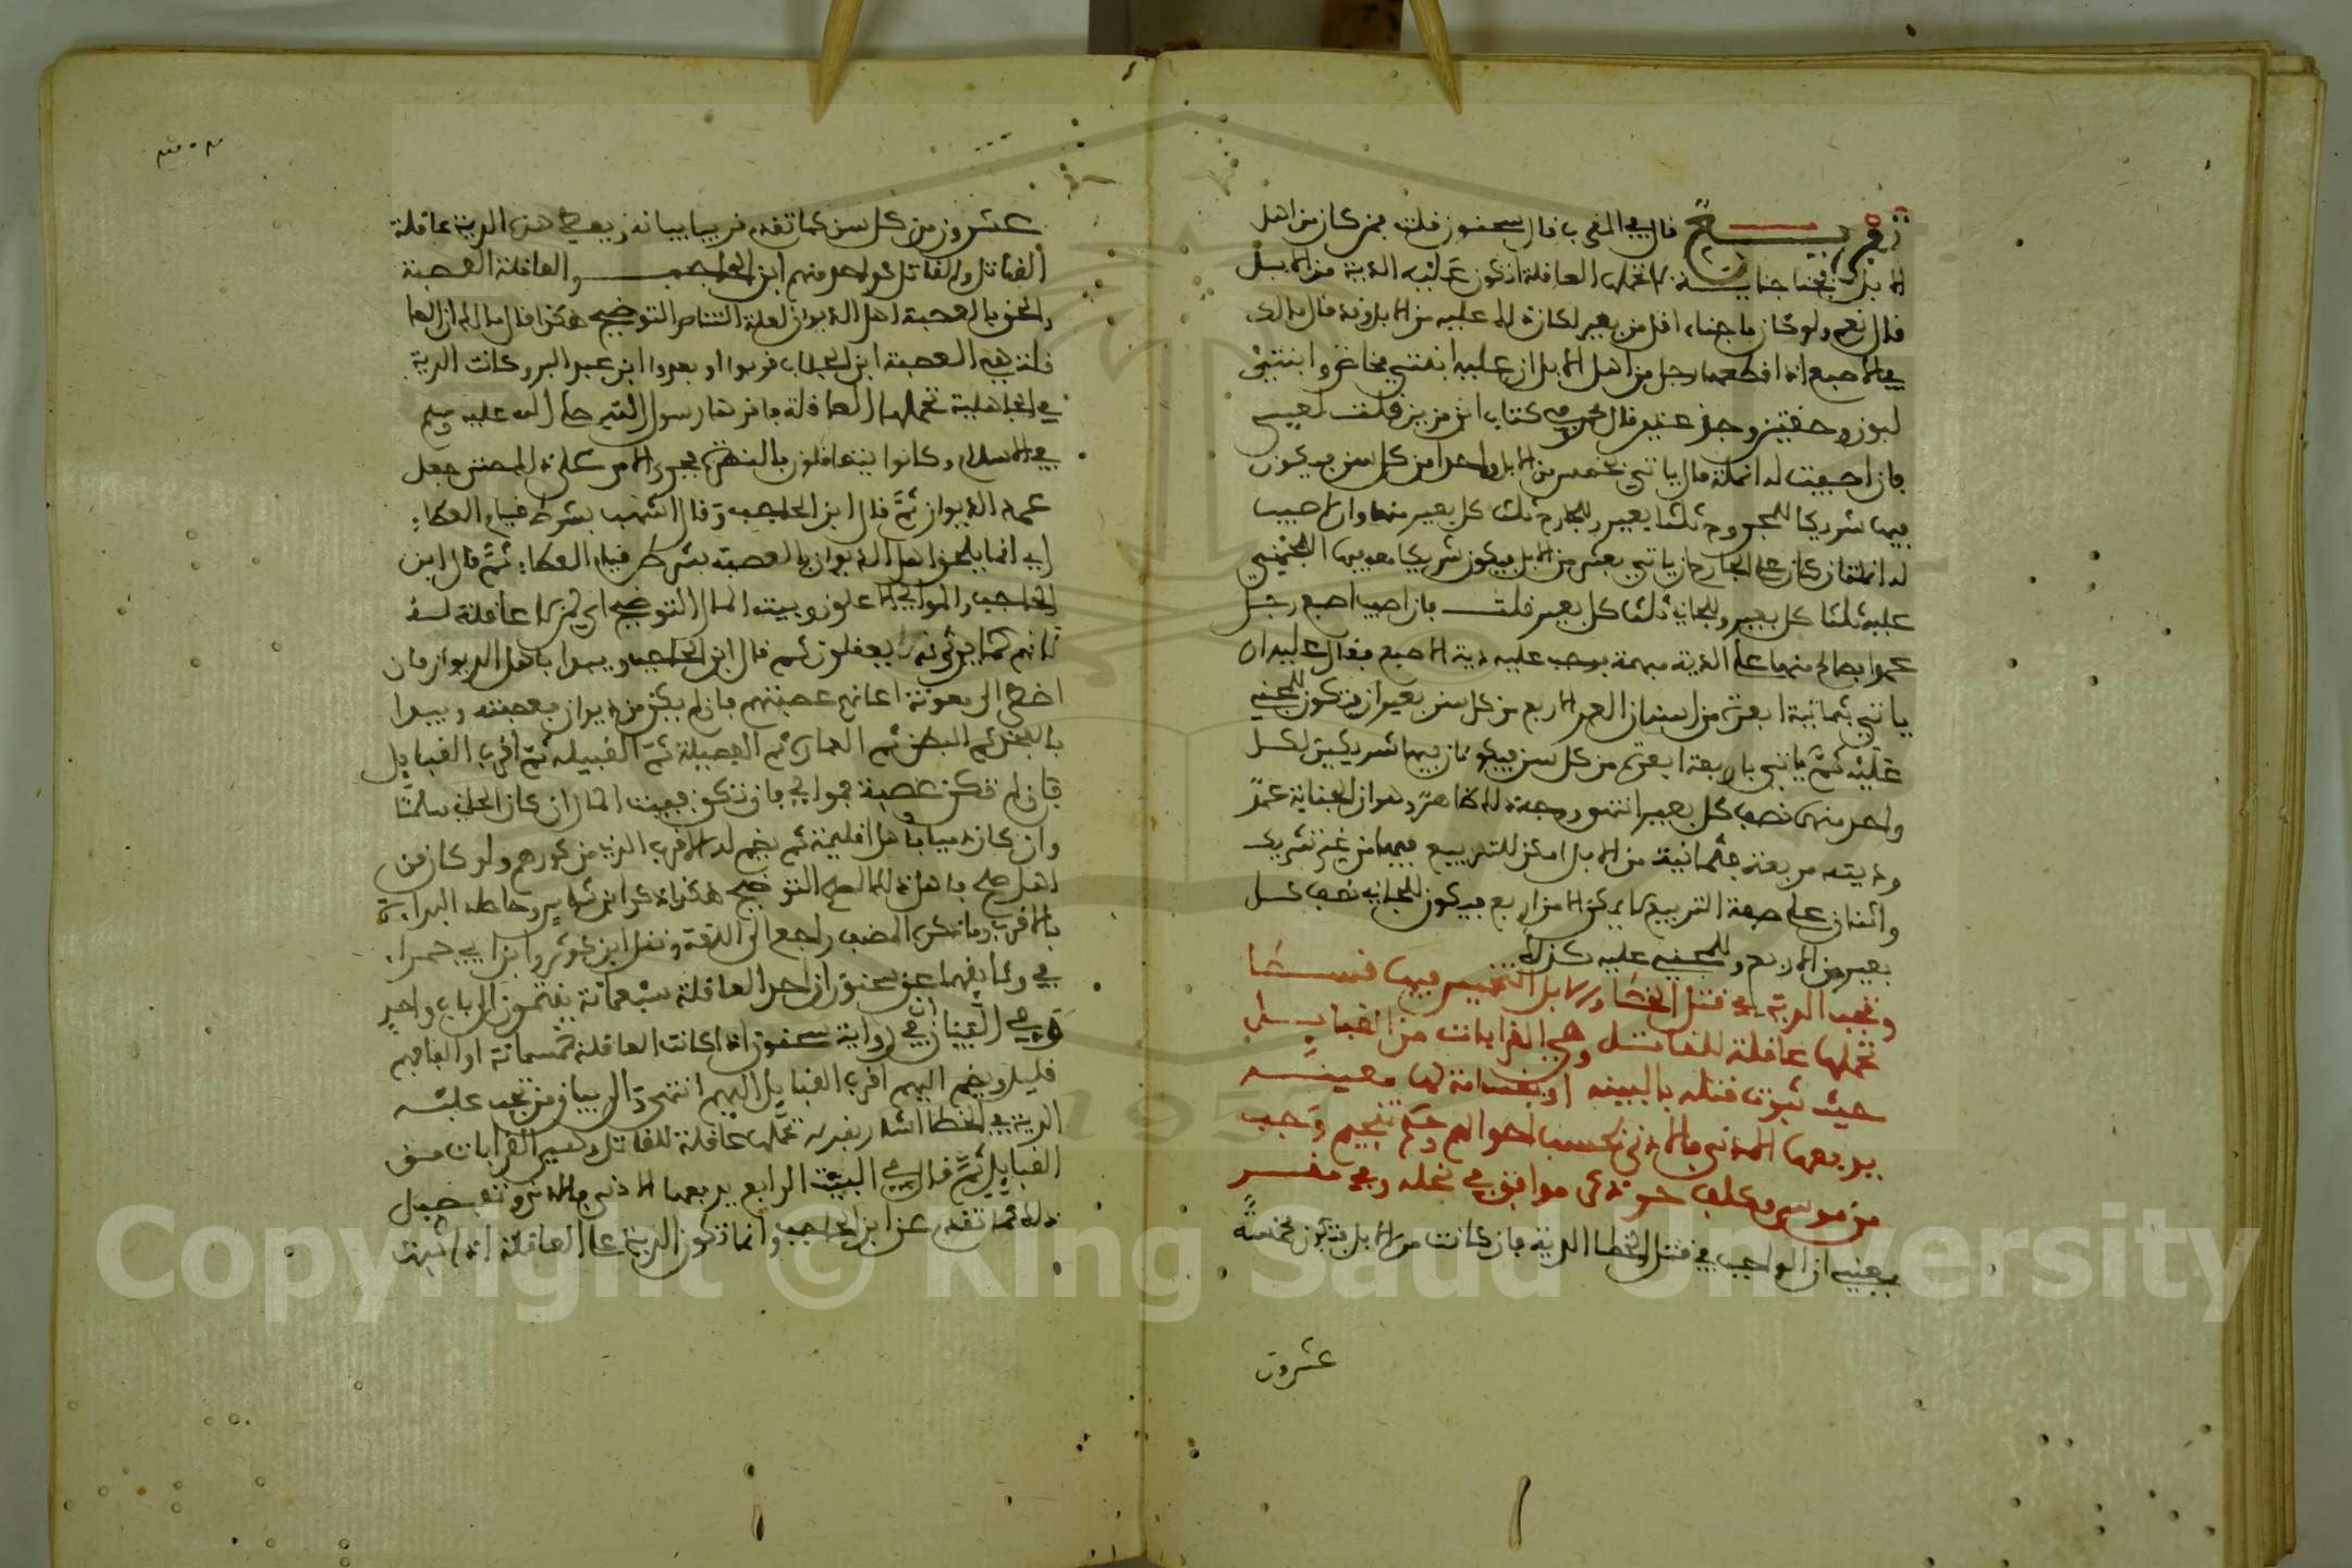 تفريع قال في المغرب قال سحنون قلت فمن كان من اهل
الابل فجنا جناية لا تحملها العاقلة اتكون عليه الدية من الابل
قال نعم ولو كان ما جناه اقل من بعير لكان ذلك عليه من الابل وقد قال مالك
في الاصبع اذا قطعها رجل من اهل الابل ان عليه ابنتي مخاض وابنتي
لبون وحقتين وجذعتين قال محمد في كتاب ابن مزين قلت لعيسى
فان اصيبت له انملة قال ياتي بخمس من الابل واحدا من كل سن فيكون
فيها شريكا للمجروح ثلثا بعير وللجارح ثلث كل بعير منها وان اصيب
له انملتان كان على الجارح ان ياتي بعشر من الابل فيكون شريكا معه فيها المجني
عليه ثلثا كل بعير وللجاني ثلث كل بعير قلت فان اصيب اصبع رجل
عمدا فصالح منها على الدية مبهمة فوجب عليه دية الاصبع فقال عليه ان
ياتي بثمانية ابعرة من اسنان العمد الاربع من كل سن بعيران فتكون للمجني
عليه ثم ياتي باربعة ابعرة من كل سن فيكونان فيها شريكين لكل
واحد منهما نصف كل بعير انتهى ووجه ذلك ظاهر وهو ان الجناية عمد
وديته مربعة فثمانية من الابل امكن للتربيع فيها من غير تشريك
واثنان على صفة التربيع لا يمكن الا من اربع فيكون للجاني نصف كل
بعير من الاربع وللمجني عليه كذلك
وتجب الدية في قتل الخطا والابل التخميس فيها قسطا
تحملها عاقلة للقاتل وهي القرابات من القبايل
حيث ثبوت قتله بالبينه او بقسامة لها معينه
يدفعها الادنى فالادنى بحسب احوالهم وحكم تنجيم وجب
من موسر مكلف حر ذكر موافق في نحلة وفي مقر
يعني ان الواجب في قتل الخطا الدية فان كانت من الابل فتكون مخمسة
عشرون
عشرون من كل سن كما تقدم قريبا بيانه ويعطي هذه الدية عاقلة
القاتل والقاتل كواحد منهم ابن الحاجب والعاقلة العصبة
والحق بالعصبة اهل الديوان لعلة التناصر التوضيح هكذا قال مالك ان العا
قلة هي العصبة ابن الجلاب قربوا او بعدوا ابن عبد البر وكانت الدية
في الجاهلية تحملها العاقلة فاقرها رسول الله صلى الله عليه وسلم
في الاسلام وكانوا يتعاقلون بالنصرة فجرى الامر على ذلك حتى جعل
عمر الديوان ثم قال ابن الحاجب وقال اشهب بشرط قيام العطاء
اي انما يلحق اهل الديوان بالعصبة بشرط قيام العطاء ثم قال ابن
الحاجب والموالي الاعلون وبيت المال التوضيح اي لمن لا عاقلة له
لانهم كما يرثونه يعقلون ثم قال ابن الحاجب ويبدا باهل الديوان فان
اضطر الى معونة اعانهم عصبتهم فان لم يكن من ديوان فعصبته ويبدا
بالفخذ ثم البطن ثم العمارة ثم الفصيلة ثم القبيلة ثم اقرب القبايل
فان لم تكن عصبة فموالي فان لم تكن فبيت المال ان كان الجاني مسلما
وان كان ذميا فاهل اقليمه ثم يضم له الاقرب اليه من كورهم ولو كان من
اهل صلح فاهل ذلك الصلح التوضيح هكذا ذكر ابن شاس وحاصله البداءة
بالاقرب وما ذكره المصنف راجع الى اللغة ونقل ابن كوثر وابن ابي حمراء
في وثائقهما عن سحنون ان احد العاقلة سبعمائة ينتمون الى اب واحد
وفي البيان في رواية سحنون اذا كانت العاقلة خمسمائة او الفا فهم
قليل ويضم اليهم اقرب القبايل اليهم انتهى والى بيان من تجب عليه
الدية في الخطا اشار بقوله تحملها عاقلة للقاتل وهي القرابات من
القبايل ثم قال في البيت الرابع يدفعها الادنى فالادنى وتفصيل
ذلك ما تقدم عن ابن الحاجب وانما تكون الدية على العاقلة اذا ثبت
Copyright © King Saud University
1957